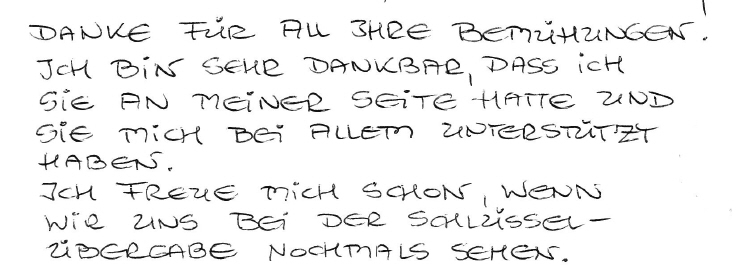 DANKE FÜR ALL IHRE BEMÜHUNGEN!
ICH BIN SEHR DANKBAR, DASS ICH
SIE AN MEINER SEITE HATTE UND
SIE MICH BEI ALLEM UNTERSTÜTZT
HABEN.
ICH FREUE MICH SCHON, WENN
WIR UNS BEI DER SCHLÜSSEL-
ÜBERGABE NOCHMALS SEHEN.